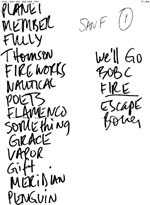 PLANET
MEMBER
FULLY
Thomson
FIREWORKS
NAUTICAL
POETS
FLAMENCO
SOMEthing
GRACE
VAPOR
Gift
MERIDIAN
PENGUIN
SANF 1
We'll Go
BOBC
FIRE
ESCAPE